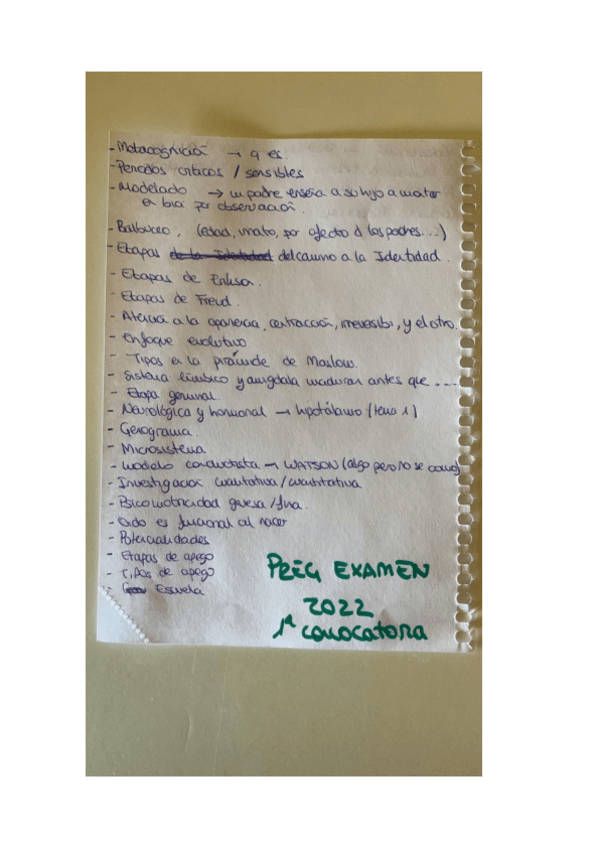 - Metacognición → q es.
- Periodos críticos / sensibles
- Modelado → un padre enseña a su hijo a montar
en bici por observación.
- Balbuceo, (edad, innato, por afecto d los padres...)
- Etapas de la Identidad del camino a la Identidad.
- Etapas de
- Etapas de Freud.
- Atención a la apariencia, centración, irreversibi, y el otro.
- Enfoque evolutivo
- Tipos en la pirámide de Maslow.
- Sistema límbico y amígdala maduran antes que ...
- Etapa germinal
- Neurológica y hormonal → hipotálamo (tema 1)
- Genograma.
- Microsistema
- Modelo conductista → WATSON (algo pero no se como)
- Investigación cualitativa / cuantitativa
- Psicomotricidad gruesa / fina.
- Oído es funcional al nacer
- Potencialidades
- Etapas de apego
- Tipos de apego
- Escuela
PREG EXAMEN
2022
1ª convocatoria